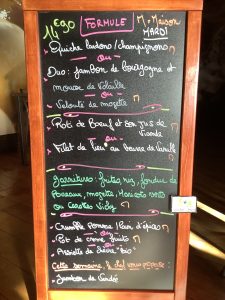 14€90 FORMULE M=Maison
MARDI
Quiche lardons/champignons
ou
Duo: jambon de bourgogne et
mousse de volaille
ou
Velouté de mozette
Rôti de Boeuf et son jus de
Viande
ou
Filet de lieu au beurre de Vanille
Garnitures: frites, riz, fondue de
Poireaux, mozette, Haricots verts
ou Carottes Vichy
Crumble Pomme/Poire d'épices
ou
Pot de crème
ou
Assiette de chèvre "bio"
Cette semaine, le chef vous propose:
Jambon de Vendée